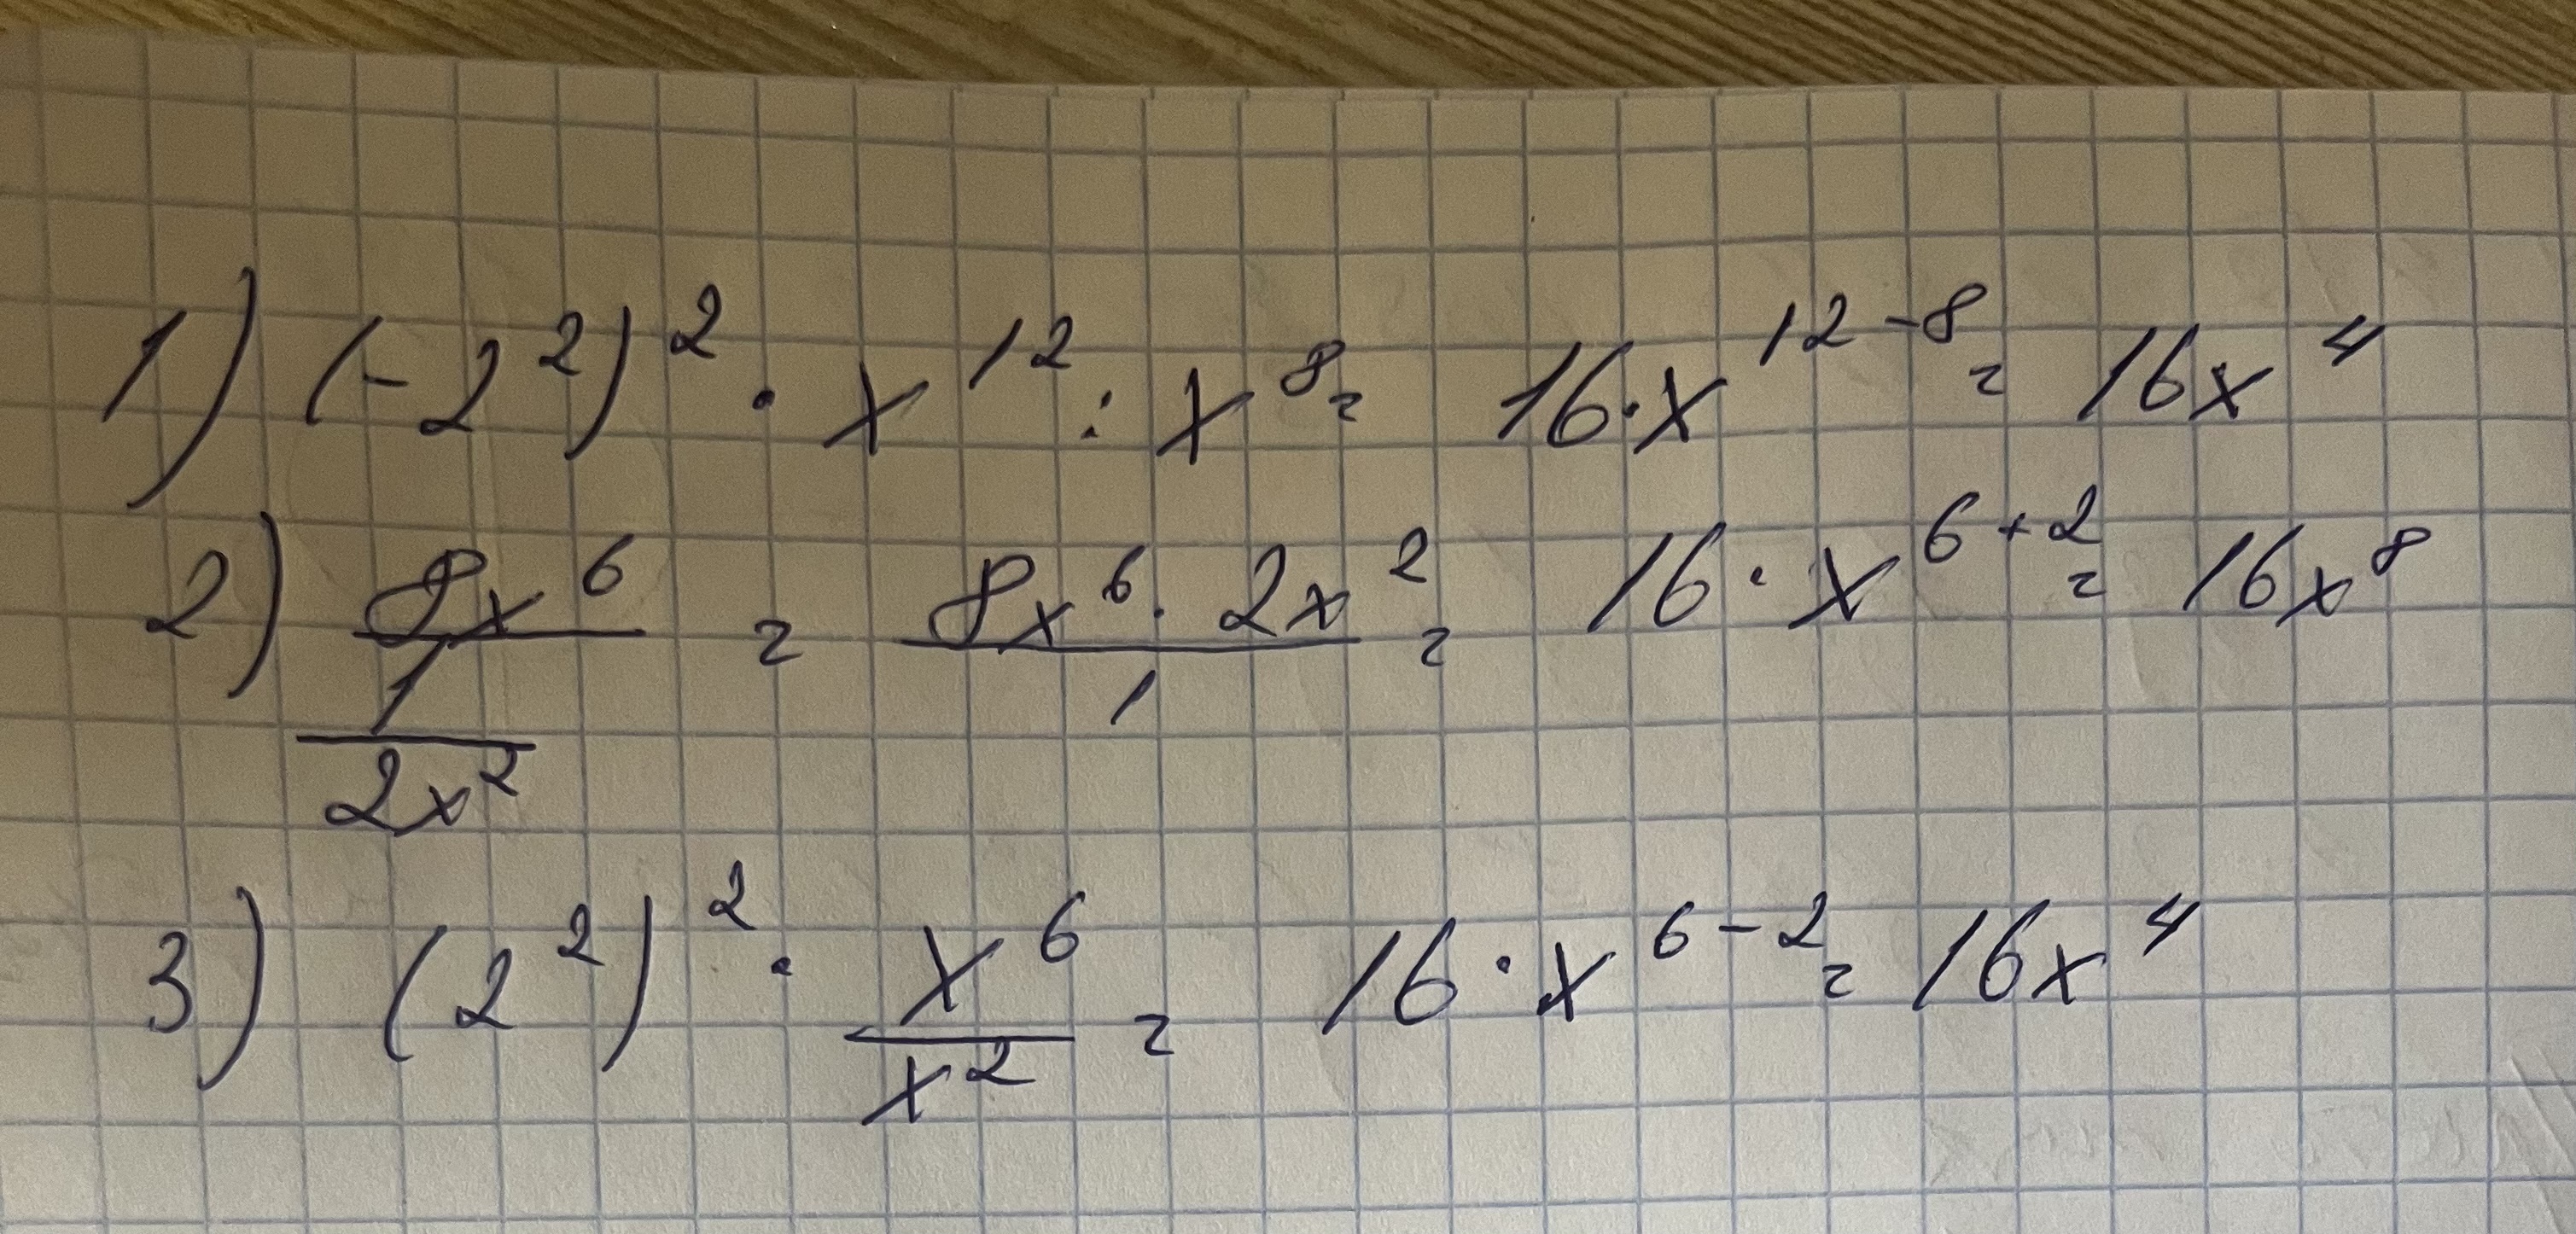 1) (-2²)² · x¹² : x⁸ = 16·x¹²⁻⁸ = 16x⁴
2) 8x⁶ / (1 / 2x²) = 8x⁶ · 2x² / 1 = 16 · x⁶⁺² = 16x⁸
3) (2²)² · x⁶ / x² = 16 · x⁶⁻² = 16x⁴